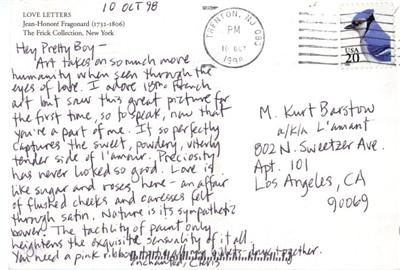 10 OCT 98
LOVE LETTERS
Jean-Honoré Fragonard (1732-1806)
The Frick Collection, New York
Hey Pretty Boy—
Art takes on so much more
humanity when seen through the
eyes of love. I adore 18th c. French
art but saw this great picture for
the first time, so to speak, now that
you're a part of me. It so perfectly
captures the sweet, powdery, utterly
tender side of l'amour. Preciosity
has never looked so good. Love is
like sugar and roses, here—an affair
of flushed cheeks and caresses felt
through satin. Nature is its sympathetic
bower. The tactility of paint only
heightens the exquisite sensuality of it all.
You need a pink ribbon together.
Enchanted, Chris
TRENTON, NJ 085
PM
10 OCT
1998
USA
20
M. Kurt Barstow
a/k/a L'amant
802 N. Sweetzer Ave.
Apt. 101
Los Angeles, CA
90069